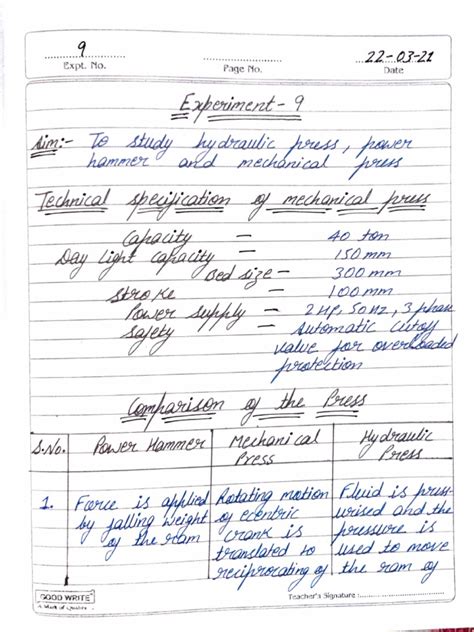 9
Expt. No.
Page No.
22-03-21
Date
Experiment-9
Aim:- To study hydraulic press, power
hammer and mechanical press
Technical specification of mechanical press
Capacity – 40 ton
Day light capacity – 150mm
Bed size – 300mm
Stroke – 100mm
Power supply – 2 Hp, 50Hz, 3 phase
Safety – Automatic cutoff
value for overloaded
protection
Comparison of the Press
S.No. Power Hammer Mechanical Press Hydraulic Press
1. Force is applied Rotating motion Fluid is press-
by falling weight of ecentric urised and the
of the ram crank is pressure is
translated to used to move
reciprocating of the ram of
GOOD WRITE
A Mark of Quality
Teacher's Signature :